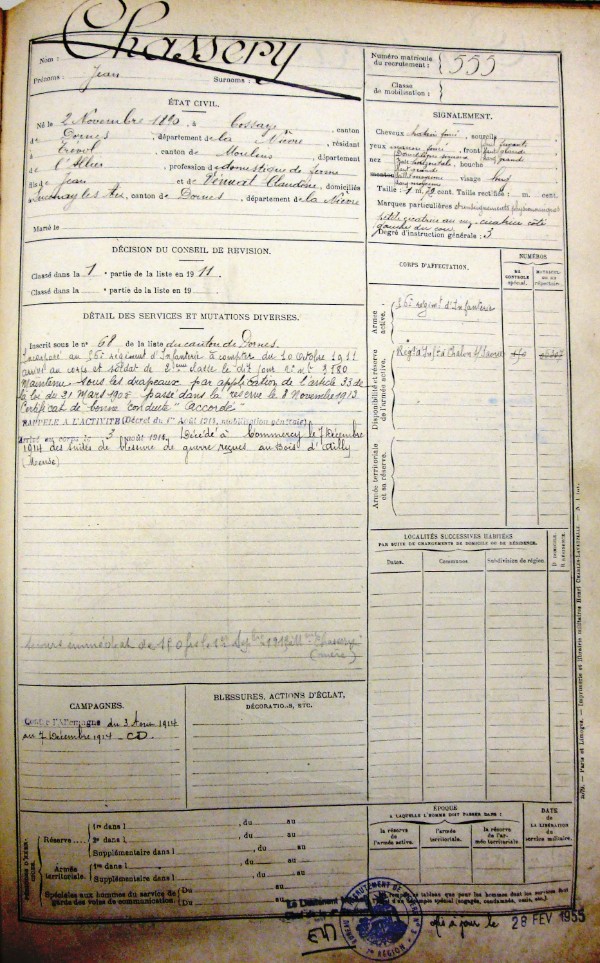 Nom : Chassery
Prénoms : Jean Surnoms :
Numéro matricule du recrutement : 555
Classe de mobilisation :
ÉTAT CIVIL.
Né le 2 Novembre 1890, à Cossaye, canton
de Dornes, département de la Nièvre, résidant
à Trévol, canton de Moulins, département
de l'Allier, profession de domestique de ferme
fils de Jean et de Claudine, domiciliés
canton de Dornes, département de la Nièvre
Marié le
SIGNALEMENT.
Cheveux châtain foncé, sourcils
yeux marron foncé, front
nez bouche
menton visage
Taille : 1 m. cent. Taille rectifiée : m. cent.
Marques particulières :
petite cicatrice au nez, cicatrice côté
gauche du cou
Degré d'instruction générale : 3
DÉCISION DU CONSEIL DE REVISION.
Classé dans la 1 e partie de la liste en 1911.
Classé dans la e partie de la liste en 19
DÉTAIL DES SERVICES ET MUTATIONS DIVERSES.
Inscrit sous le n° 68 de la liste du canton de Dornes.
Incorporé au 56e régiment d'Infanterie à compter du 10 octobre 1911
arrivé au corps et soldat de 2ème classe le dit jour
Maintenu sous les drapeaux par application de l'article 33 de
la loi du 21 Mars 1905 passé dans la réserve le 8 Novembre 1913
Certificat de bonne conduite "Accordé"
RAPPELÉ A L'ACTIVITÉ (Décret du 1er Août 1914, mobilisation générale)
Arrivé au corps le 3 août 1914. Décédé à Commercy le 7 Décembre
1914 des suites de blessure de guerre reçues au Bois d'Ailly
(Meuse)
Secours immédiat de 150 f Chassery
(mère)
CORPS D'AFFECTATION.
NUMÉROS
DE CONTRÔLE spécial.
MATRICULE ou au répertoire.
Armée active.
56e régiment d'Infanterie
Disponibilité et réserve de l'armée active.
Régt d'Infie Chalon s/Saône
Armée territoriale et sa réserve.
LOCALITÉS SUCCESSIVES HABITÉES
PAR SUITE DE CHANGEMENTS DE DOMICILE OU DE RÉSIDENCE.
Dates. Communes. Subdivision de région. D. DOMICILE. R. RÉSIDENCE.
CAMPAGNES.
Contre l'Allemagne du 3 Août 1914
au 7 Décembre 1914 - CD.
BLESSURES, ACTIONS D'ÉCLAT,
DÉCORATIONS, ETC.
PÉRIODES D'EXERCICES.
Réserve....
1re dans l , du au
2e dans l , du au
Supplémentaire dans l , du au
Armée territoriale.
1re dans l , du au
Supplémentaire dans l , du au
Spéciales aux hommes du service de garde des voies de communication.
Du au
Du au
ÉPOQUE
A LAQUELLE L'HOMME DOIT PASSER DANS :
la réserve de l'armée active.
l'armée territoriale.
la réserve de l'armée territoriale
DATE
DE LA LIBÉRATION
du service militaire.
Paris et Limoges. — Imprimerie et librairie militaires Henri CHARLES-LAVAUZELLE
Le Lieutenant
RECRUTEMENT DE
RÉGION
mis à jour le 28 FEV 1955